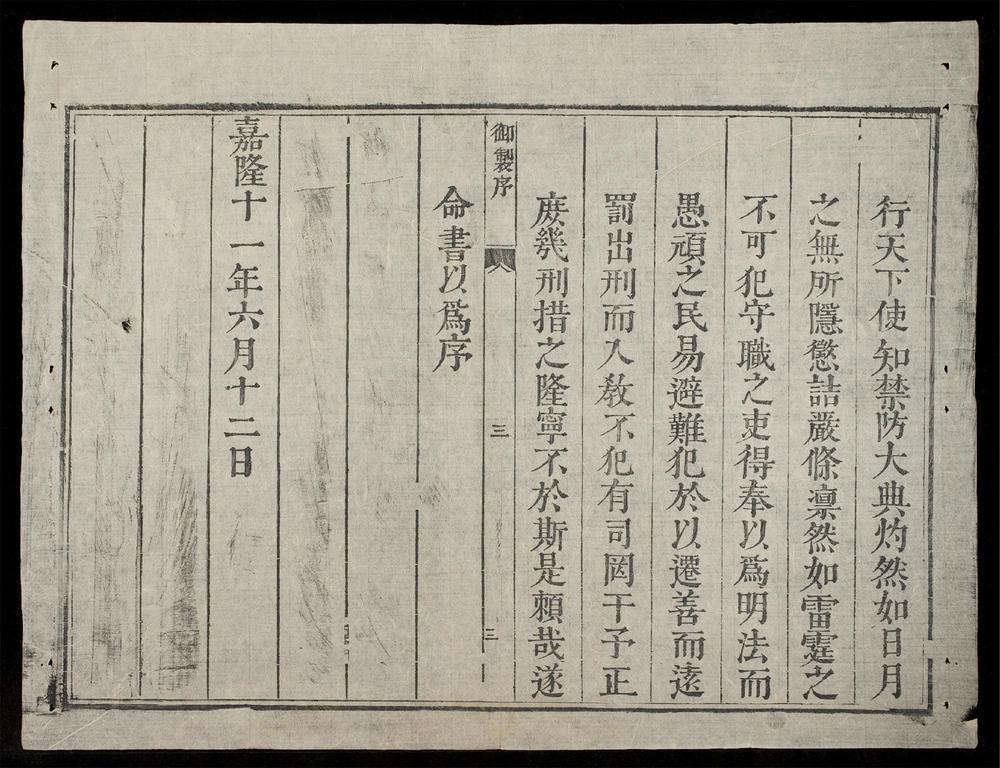 行天下使知禁防大典灼然如日月
之無所隱懲詰嚴條凛然如雷霆之
不可犯守職之吏得奉以爲明法而
愚頑之民易避難犯於以遷善而遠
罰出刑而入敎不犯有司罔干予正
庶幾刑措之隆寧不於斯是賴哉遂
御製序
三
三
命書以爲序
嘉隆十一年六月十二日